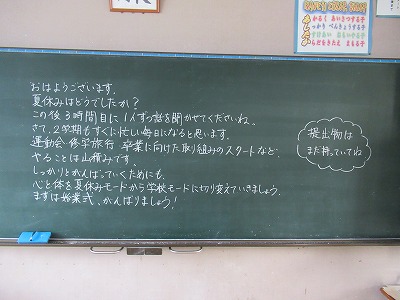 おはようございます。
夏休みはどうでしたか？
この後3時間目に1人ずつ話を聞かせてくださいね。
さて、2学期もすぐに忙しい毎日になると思います。
運動会・修学旅行 卒業に向けた取り組みのスタートなど、
やることは山積みです。
しっかりとがんばっていくためにも、
心と体を夏休みモードから学校モードに切り変えていきましょう。
まずは始業式、がんばりましょう！
提出物は
まだ持っていてね
かるく あいさつする子
っかり べんきょうする子